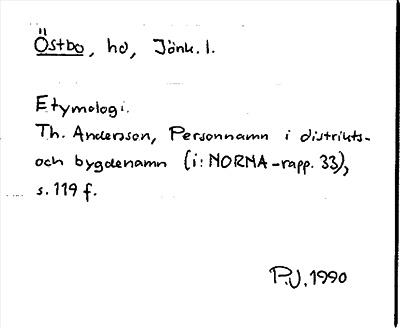 Östbo, hd, Jönk. l.
Etymologi.
Th. Andersson, Personnamn i distrikts-
och bygdenamn (i: NORNA-rapp. 33),
s. 119 f.
P.V. 1990